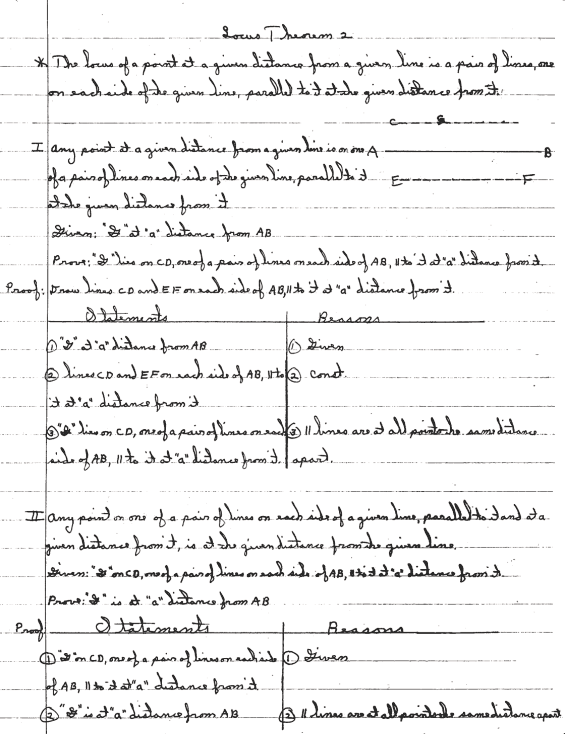 Locus Theorem 2
* The locus of a point at a given distance from a given line is a pair of lines, one
on each side of the given line, parallel to it at the given distance from it.
C
I any point at a given distance from a given line is on one A B
of a pair of lines on each side of the given line, parallel to it E F
at the given distance from it
Given: "G" at "a" distance from AB
Prove: "G" lies on CD, one of a pair of lines on each side of AB, || to it at "a" distance from it.
Proof: Draw lines CD and EF on each side of AB, || to it at "a" distance from it.
Statements Reasons
① "G" at "a" distance from AB ① Given
② lines CD and EF on each side of AB, || to ② const.
it at "a" distance from it
③ "G" lies on CD, one of a pair of lines on each ③ || lines are at all points the same distance
side of AB, || to it at "a" distance from it. apart.
II any point on one of a pair of lines on each side of a given line, parallel to it and at a
given distance from it, is at the given distance from the given line.
Given: "G" on CD, one of a pair of lines on each side of AB, || to it at "a" distance from it.
Prove: "G" is at "a" distance from AB
Proof Statements Reasons
① "G" on CD, one of a pair of lines on each side ① Given
of AB, || to it at "a" distance from it
② "G" is at "a" distance from AB ② || lines are at all points the same distance apart